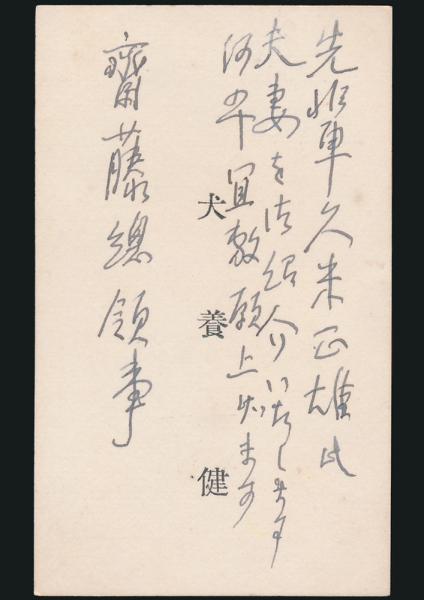 先輩久米正雄氏
夫妻を御紹介いたします
何卒宜敷願上げます
犬養健
齋藤總領事